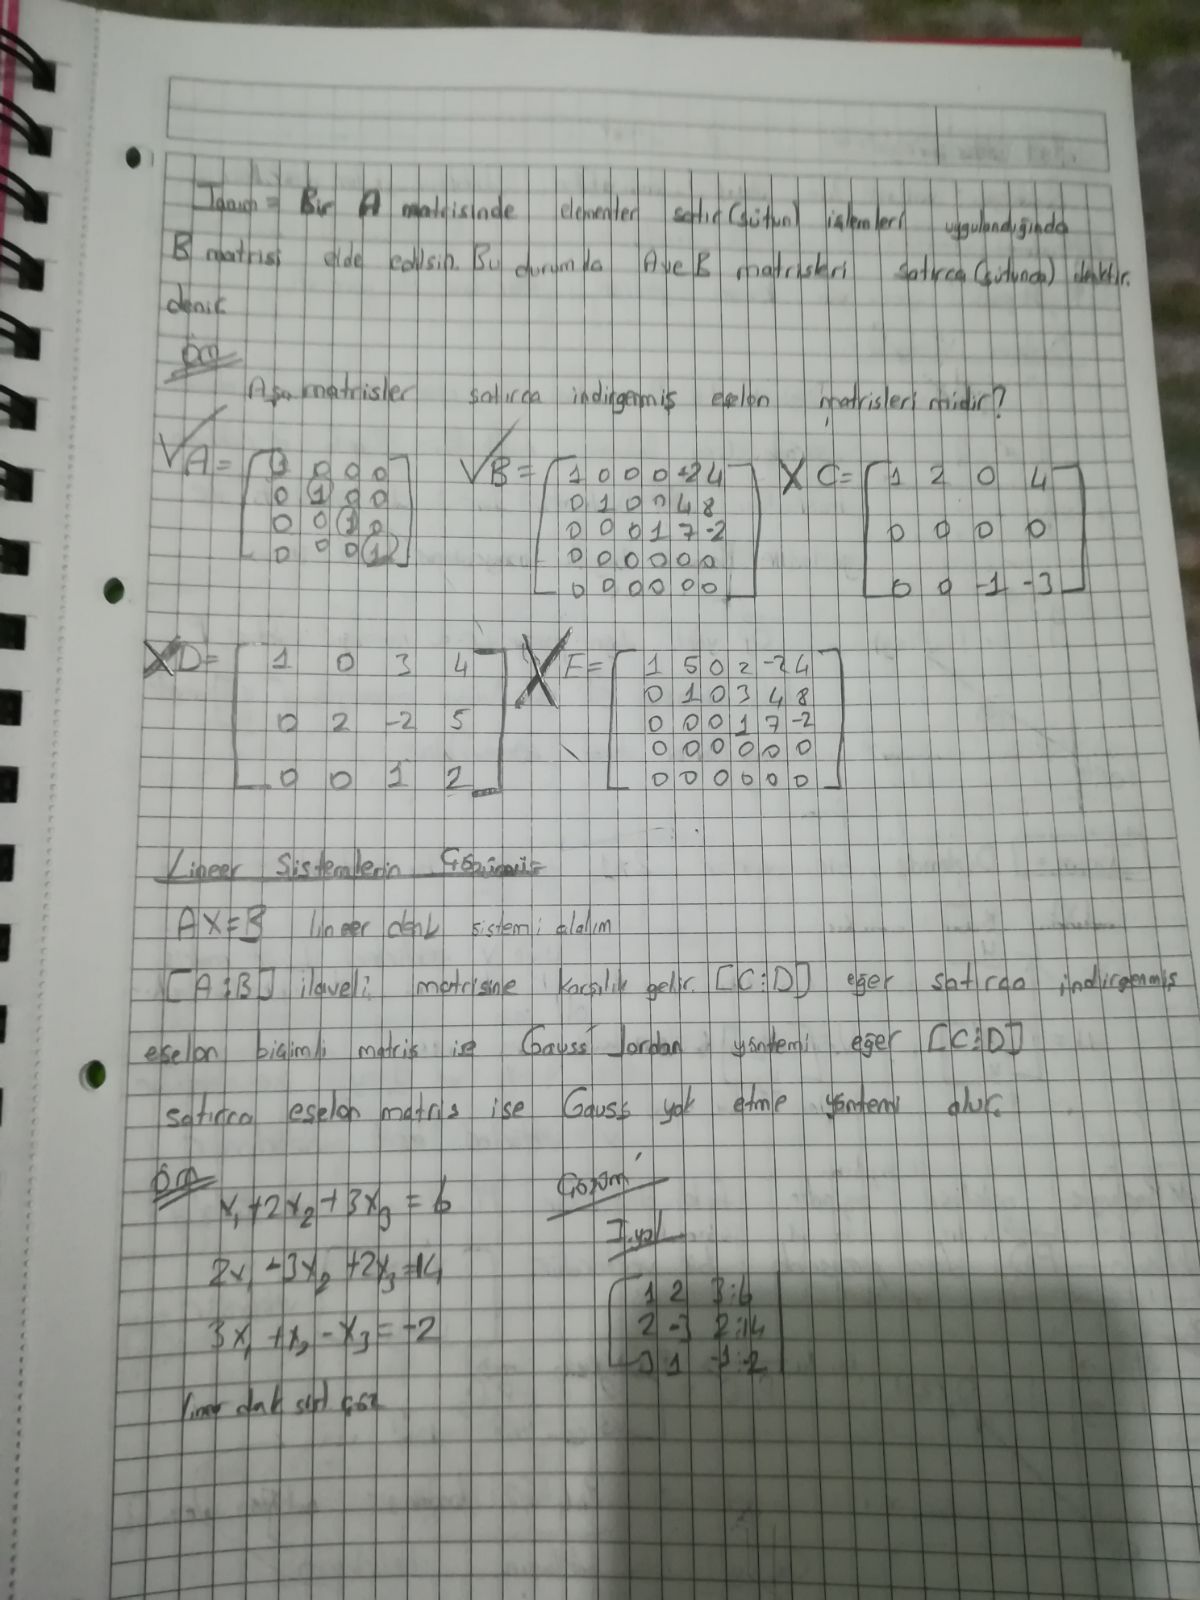 Bir A matrisinde elementer satır (sütun) işlemleri uygulandığında
B matrisi elde edilsin. Bu durumda A ve B matrisleri satırca (sütunca) denktir.
denir
Örn
Aşa. matrisler satırca indirgenmiş eşelon matrisleri midir?
√ A = [1 0 0 0
0 1 0 0
0 0 1 0
0 0 0 1]
√ B = [1 0 0 0 -2 4
0 1 0 0 4 8
0 0 0 1 7 -2
0 0 0 0 0 0
0 0 0 0 0 0]
X C = [1 2 0 4
0 0 0 0
0 0 -1 -3]
X D = [1 0 3 4
0 2 -2 5
0 0 1 2]
X E = [1 5 0 2 -2 4
0 1 0 3 4 8
0 0 0 1 7 -2
0 0 0 0 0 0
0 0 0 0 0 0]
Lineer Sistemlerin
AX=B lineer denk sistemi alalım
[A:B] ilaveli matrisine karşılık gelir. [C:D] eğer satırca indirgenmiş
eşelon biçimli matris ise Gauss Jordan yöntemi eğer [C:D]
satırca eşelon matris ise Gauss yok etme yöntemi olur.
Örn
x₁+2x₂+3x₃=6
2x₁-3x₂+2x₃=14
3x₁+x₂-x₃=-2
Çözüm
I.yol
[1 2 3:6
2 -3 2:14
3 1 -1:-2]